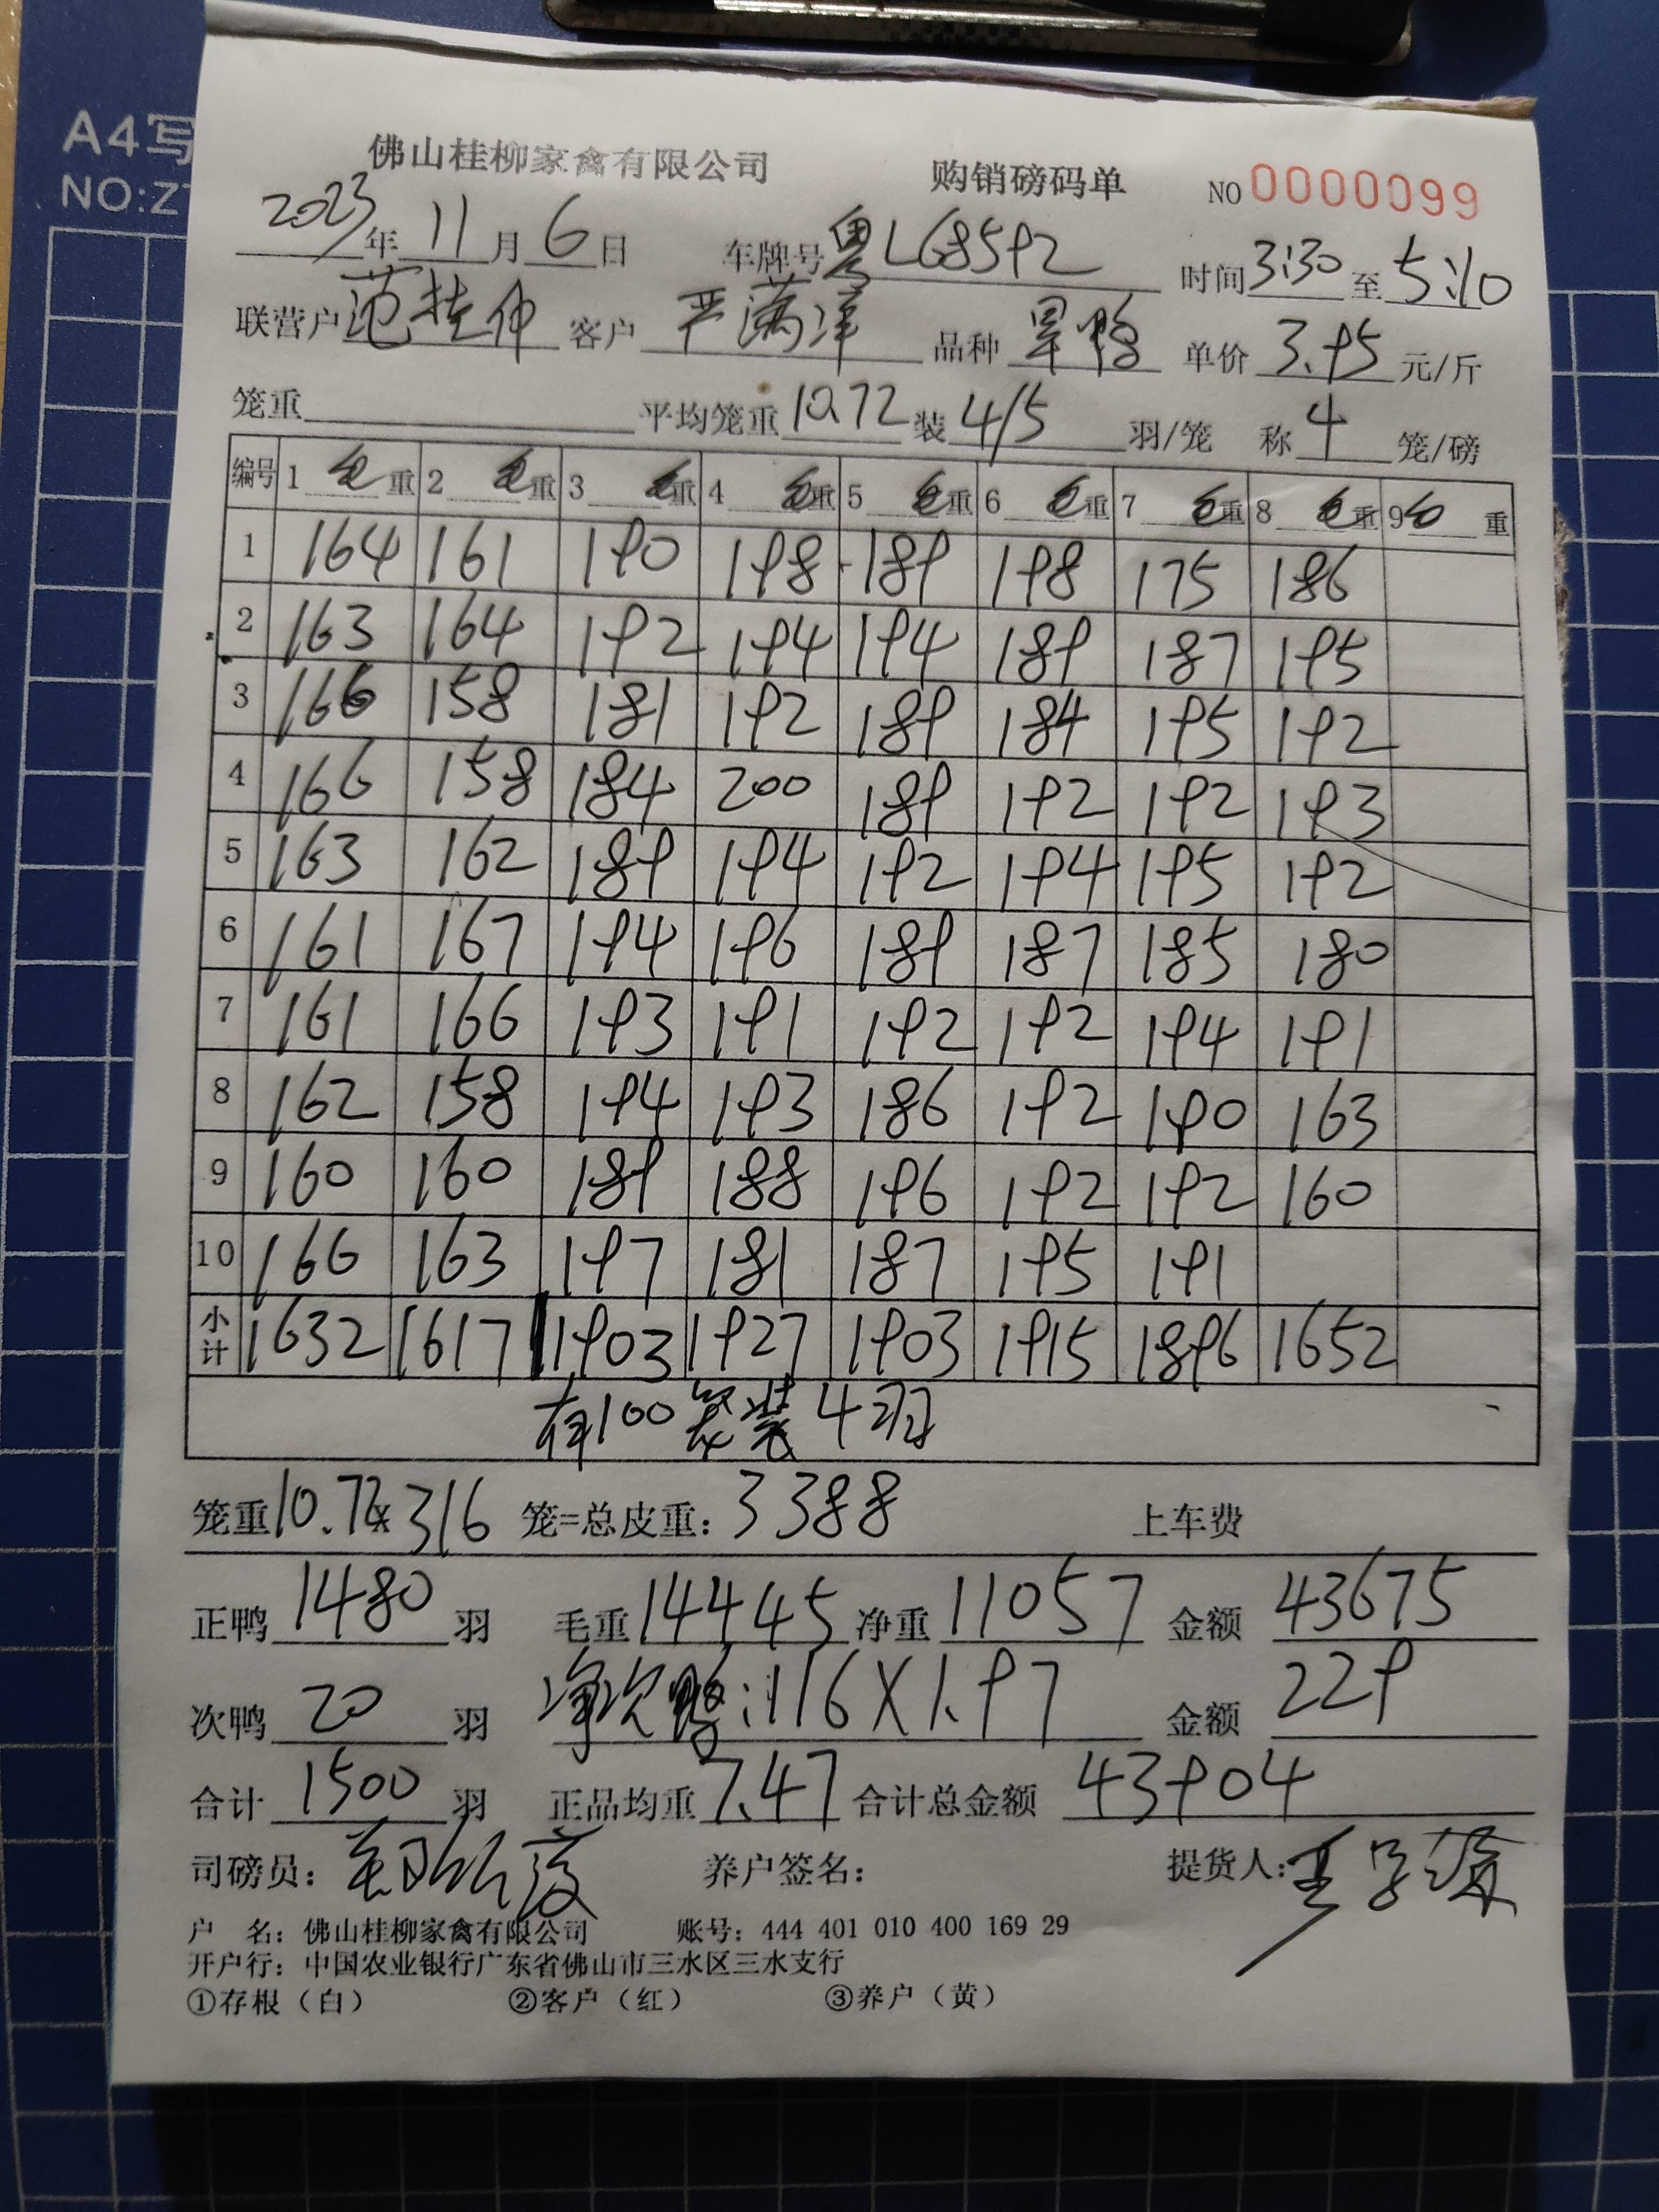 A4写
NO:Z
佛山桂柳家禽有限公司 购销磅码单 NO 0000099
2023年 11月 6日 车牌号 粤L68592 时间 3:30 至 5:10
联营户 范桂伸 客户 严满洋 品种 旱鸭 单价 3.95 元/斤
笼重 平均笼重 10.72 装 4/5 羽/笼 称 4 笼/磅
编号 1 毛重 2 毛重 3 毛重 4 毛重 5 毛重 6 毛重 7 毛重 8 毛重 9 毛重
1 164 161 190 198 189 198 175 186
2 163 164 192 194 194 189 187 195
3 166 158 181 192 189 184 195 192
4 166 158 184 200 189 192 192 193
5 163 162 189 194 192 194 195 192
6 161 167 194 196 189 187 185 180
7 161 166 193 191 192 192 194 191
8 162 158 194 193 186 192 190 163
9 160 160 189 188 196 192 192 160
10 166 163 197 181 187 195 191
小计 1632 1617 1903 1927 1903 1915 1896 1652
有100笼装4羽
笼重 10.72x316 笼=总皮重: 3388 上车费
正鸭 1480 羽 毛重 14445 净重 11057 金额 43675
次鸭 20 羽 净次鸭:116X1.97 金额 229
合计 1500 羽 正品均重 7.47 合计总金额 43904
司磅员: 养户签名: 提货人:
户 名: 佛山桂柳家禽有限公司 账号: 444 401 010 400 169 29
开户行: 中国农业银行广东省佛山市三水区三水支行
①存根（白） ②客户（红） ③养户（黄）